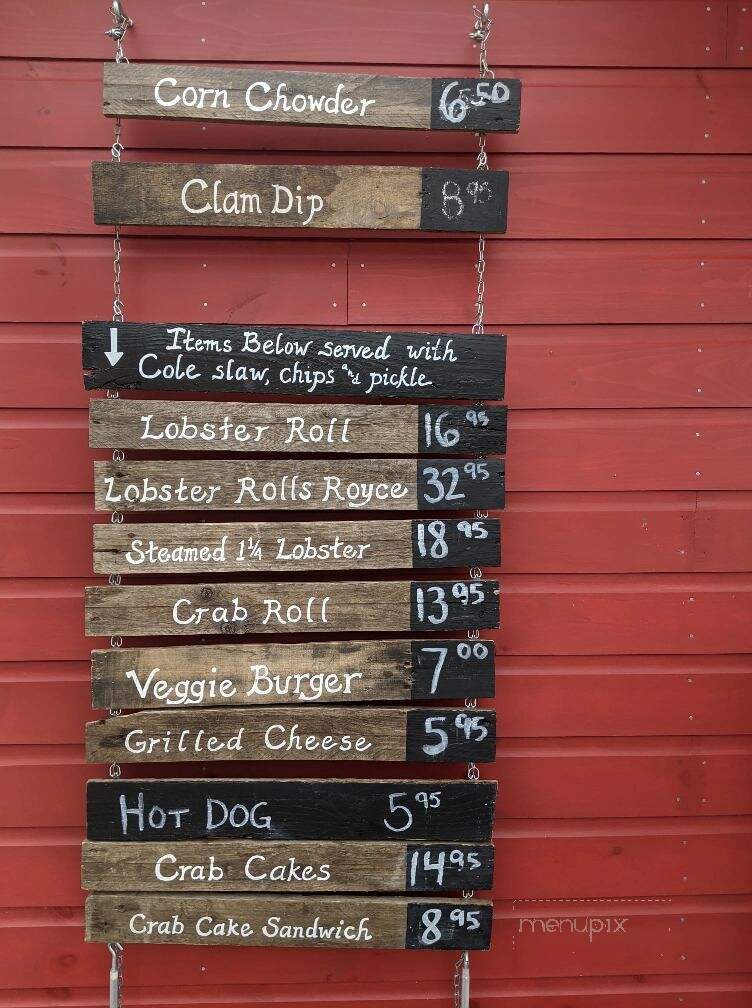 Corn Chowder 6.50
Clam Dip 8 95
↓ Items Below served with
Cole slaw, chips and pickle
Lobster Roll 16 95
Lobster Rolls Royce 32 95
Steamed 1¼ Lobster 18 95
Crab Roll 13 95
Veggie Burger 7 00
Grilled Cheese 5 95
HOT DOG 5 95
Crab Cakes 14 95
Crab Cake Sandwich 8 95
menupix